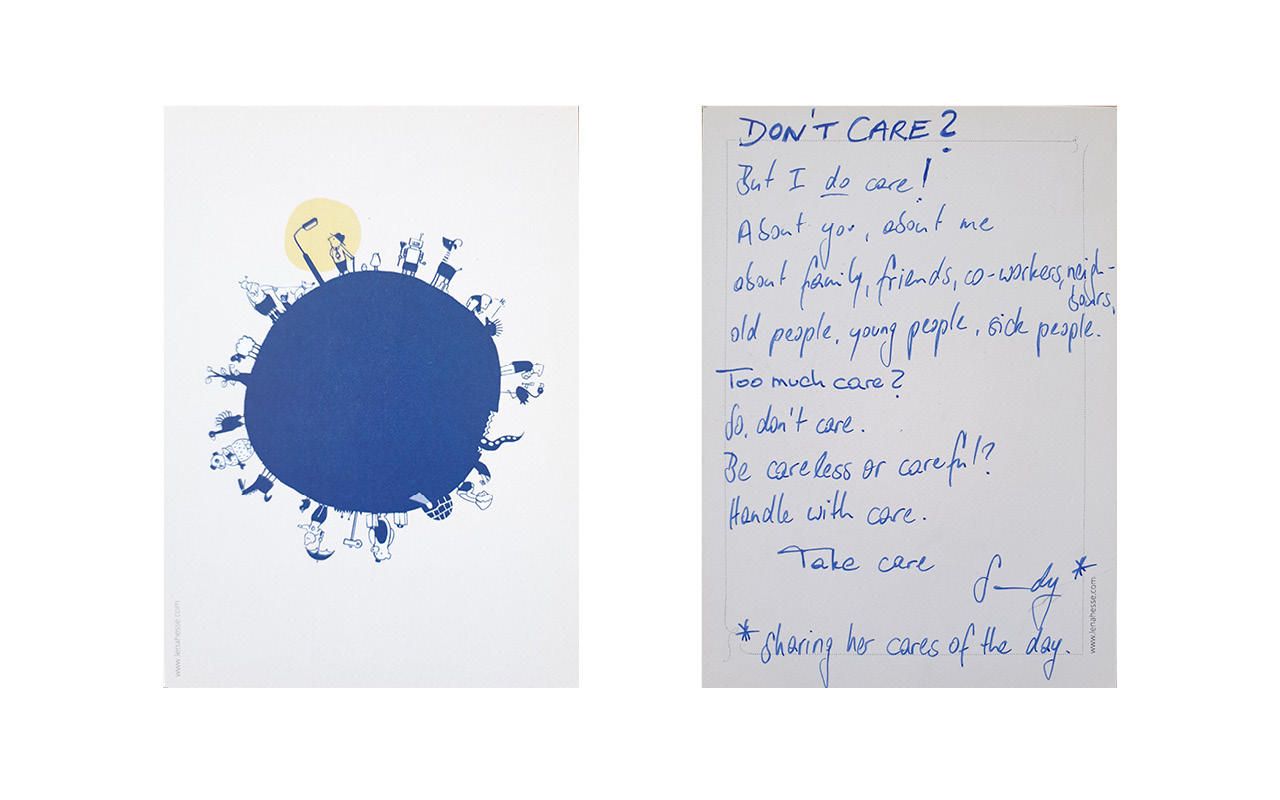 www.lenahesse.com
DON'T CARE?
But I do care!
About you, about me
about family, friends, co-workers, neigh-
bours,
old people, young people, sick people.
Too much care?
So, don't care.
Be careless or careful?
Handle with care.
Take care
*
www.lenahesse.com
* Sharing her cares of the day.